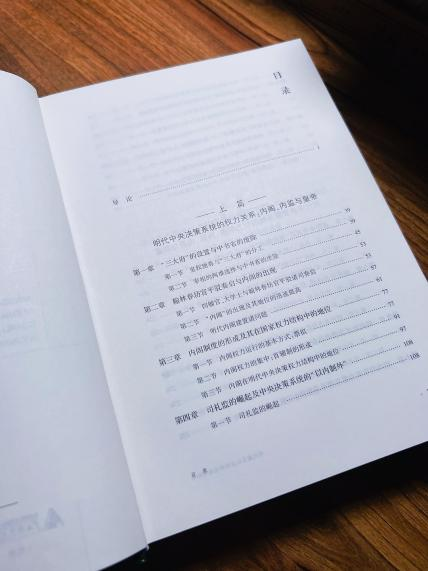 目
录
导 论 1
上 篇
明代中央决策系统的权力关系：内阁、内监与皇帝
第一章 “三大府”的设置与中书省的废除 39
第一节 皇权独尊与“三大府”的分工 39
第二节 宰相的两难选择与中书省的废除 45
第二章 翰林春坊官平驳奏启与内阁的出现 53
第一节 四辅官、大学士与翰林春坊官平驳诸司奏启 53
第二节 “内阁”的出现及其地位的迅速提高 57
第三节 明代内阁建置诸问题
第三章 内阁制度的形成及其在国家权力结构中的地位
第一节 内阁权力运行的基本方式：票拟
第二节 内阁权力的集中：首辅制的形成 91
第三节 内阁在明代中央决策权力结构中的地位 97
第四章 司礼监的崛起及中央决策系统的“以内制外” 108
第一节 司礼监的崛起 108
目 录